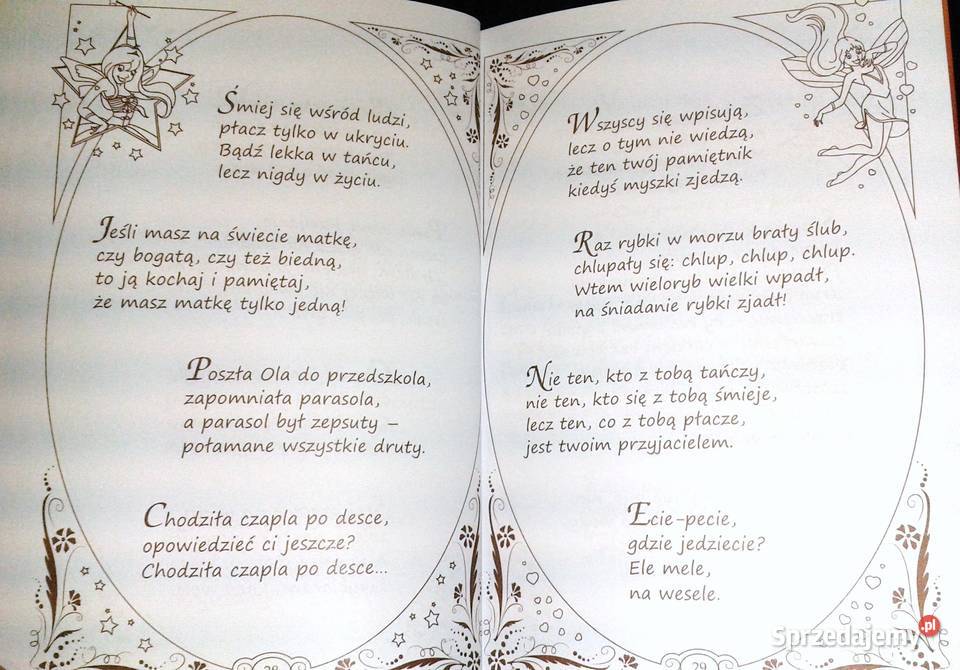 Śmiej się wśród ludzi,
płacz tylko w ukryciu.
Bądź lekka w tańcu,
lecz nigdy w życiu.
Jeśli masz na świecie matkę,
czy bogatą, czy też biedną,
to ją kochaj i pamiętaj,
że masz matkę tylko jedną!
Poszła Ola do przedszkola,
zapomniała parasola,
a parasol był zepsuty –
połamane wszystkie druty.
Chodziła czapla po desce,
opowiedzieć ci jeszcze?
Chodziła czapla po desce...
28
Wszyscy się wpisują,
lecz o tym nie wiedzą,
że ten twój pamiętnik
kiedyś myszki zjedzą.
Raz rybki w morzu brały ślub,
chlupały się: chlup, chlup, chlup.
Wtem wieloryb wielki wpadł,
na śniadanie rybki zjadł!
Nie ten, kto z tobą tańczy,
nie ten, kto się z tobą śmieje,
lecz ten, co z tobą płacze,
jest twoim przyjacielem.
Ecie-pecie,
gdzie jedziecie?
Ele mele,
na wesele.
29
Sprzedajemy.pl